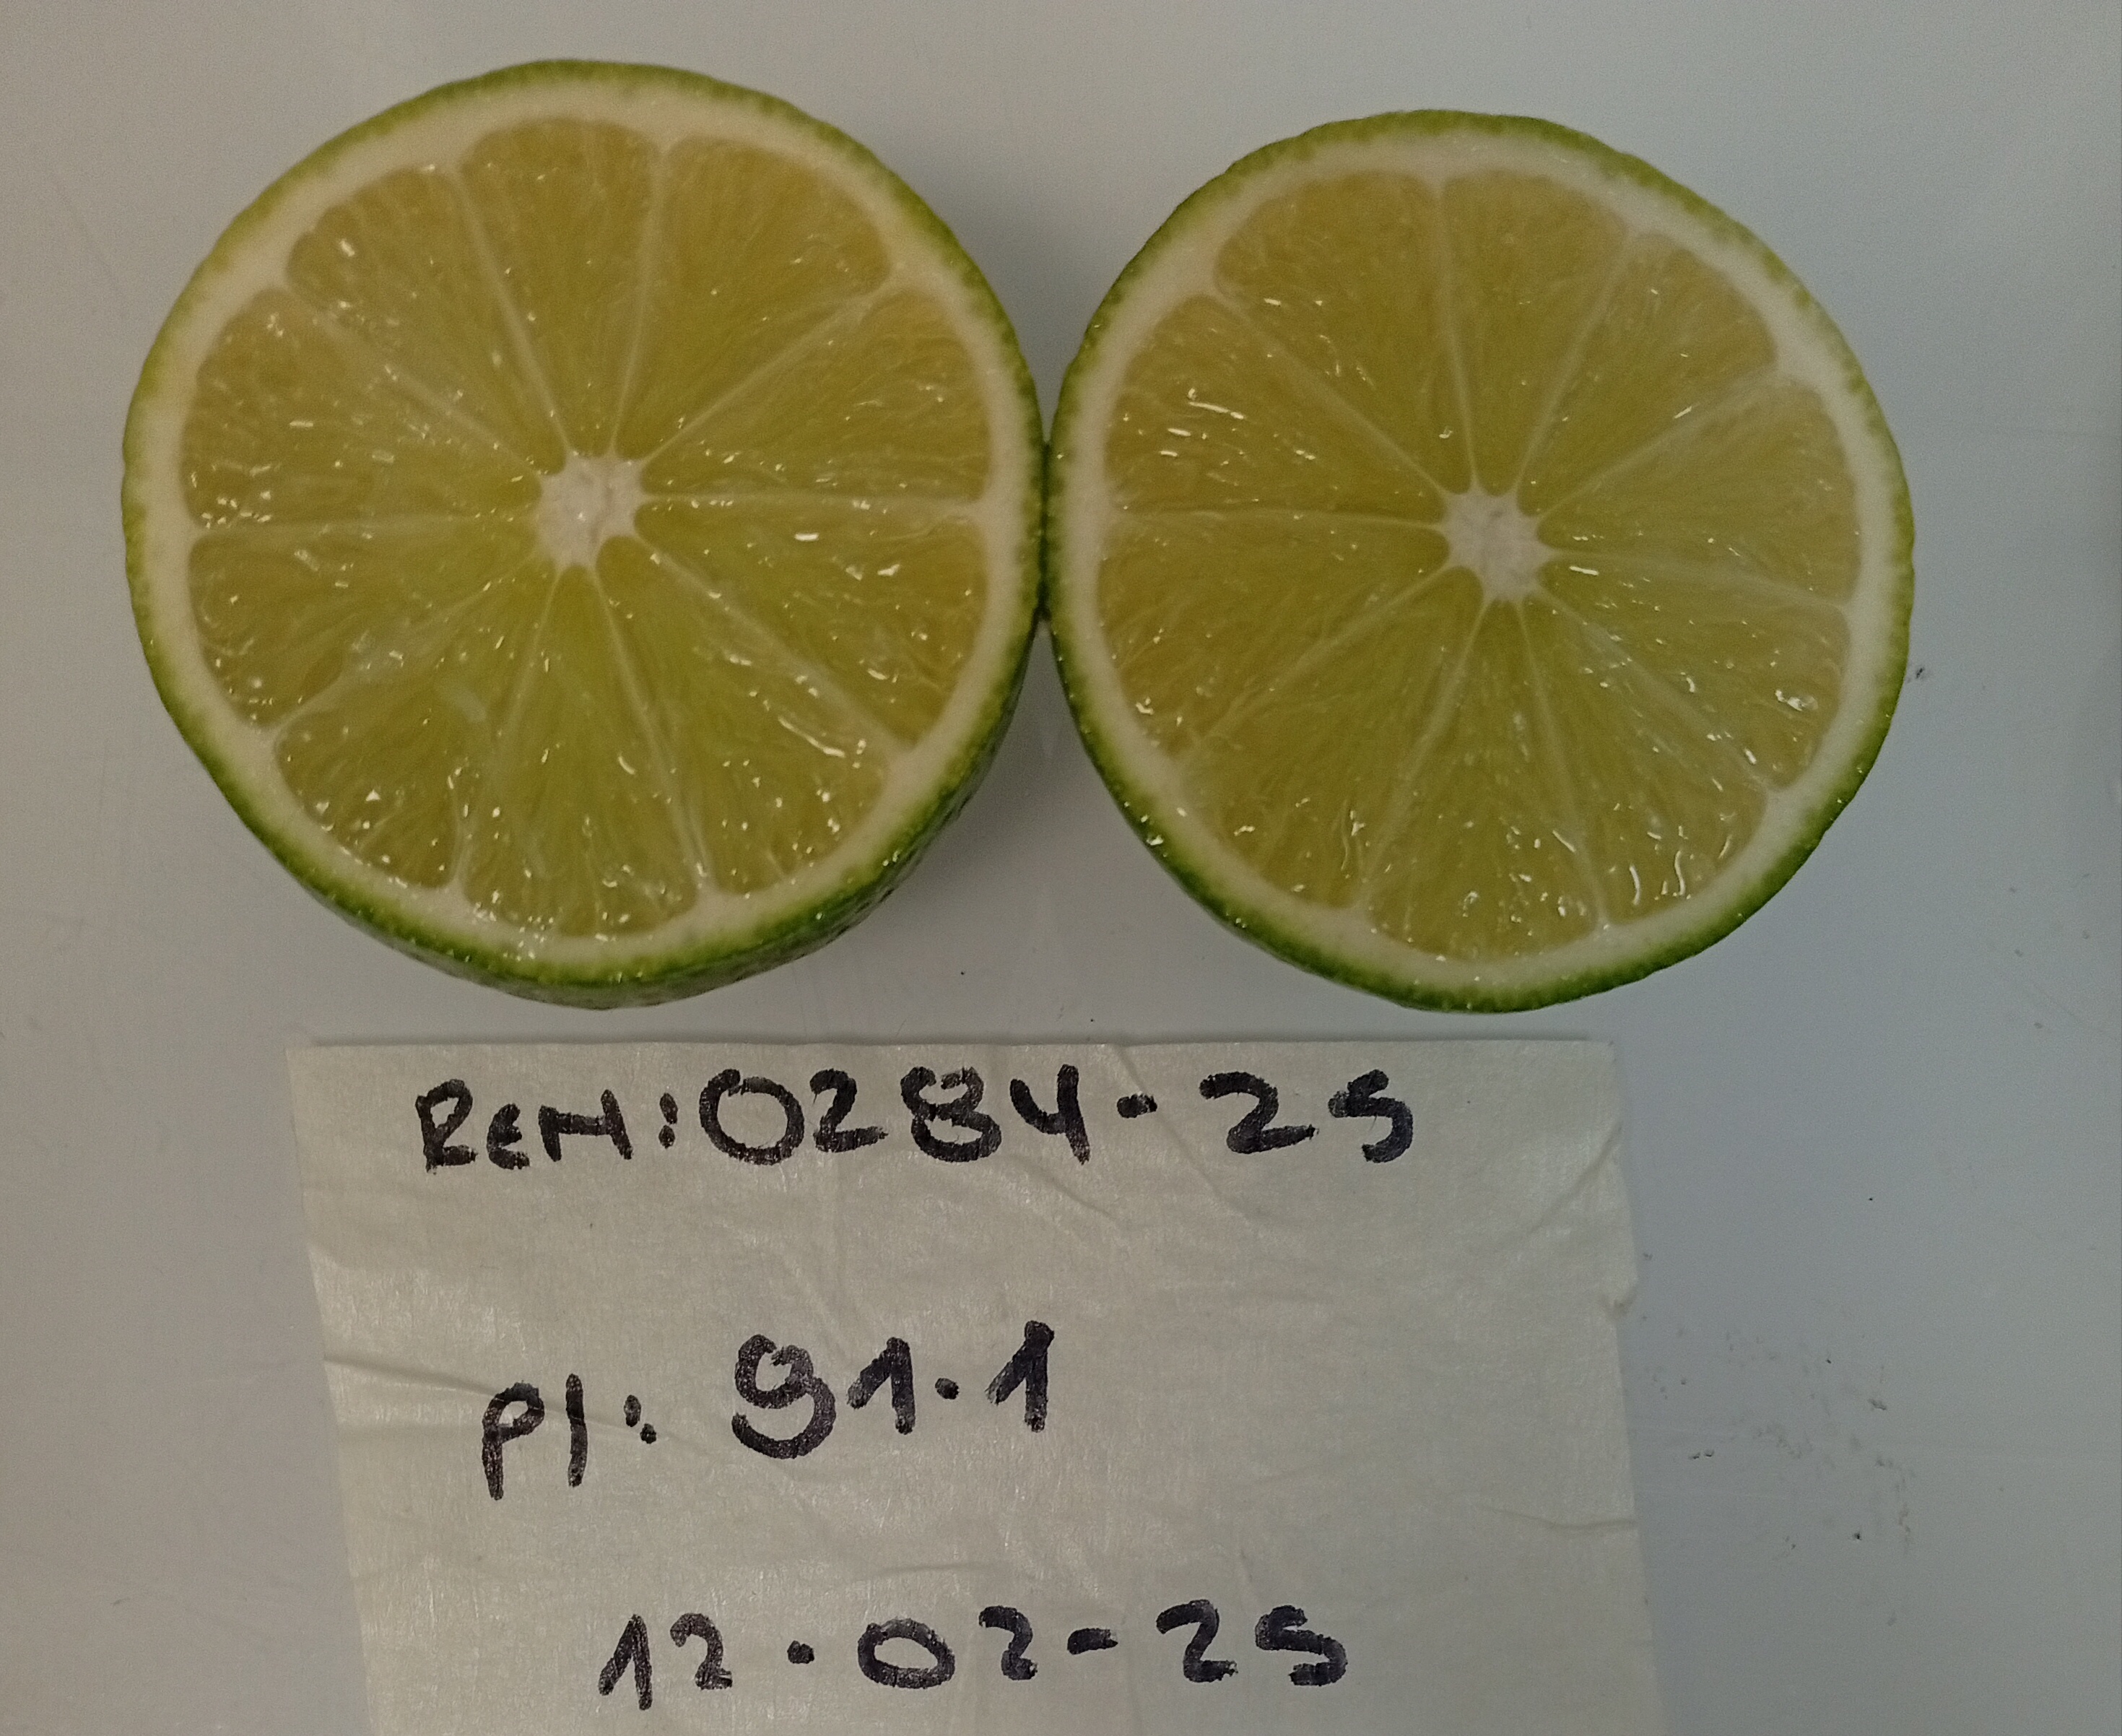 REM:0284-25
PI: 91.1
12.02-25